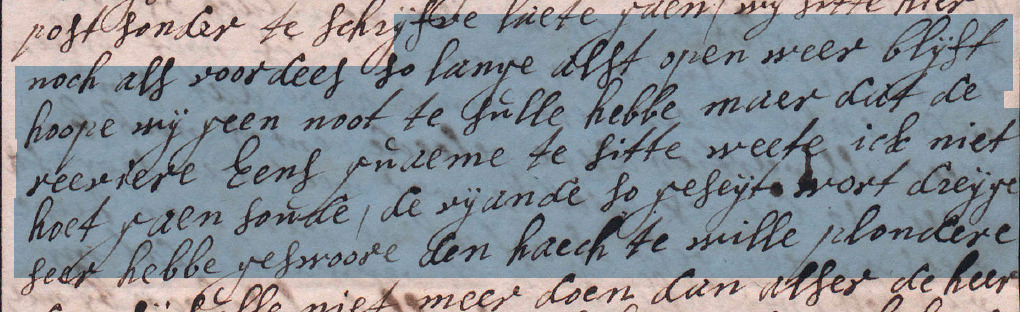 post sonder te schrijfve laete gaen, wij sitte hier
noch alss voordees so lange alst open weer blijft
hoope wij geen noot te sulle hebbe maer dat de
reeviere Eens quaeme te sitte weete ick niet
hoet gaen soude, de vijande so geseijt wort dreijge
seer hebbe geswoore den haech te wille plondere
niet meer doen dan alser de heer